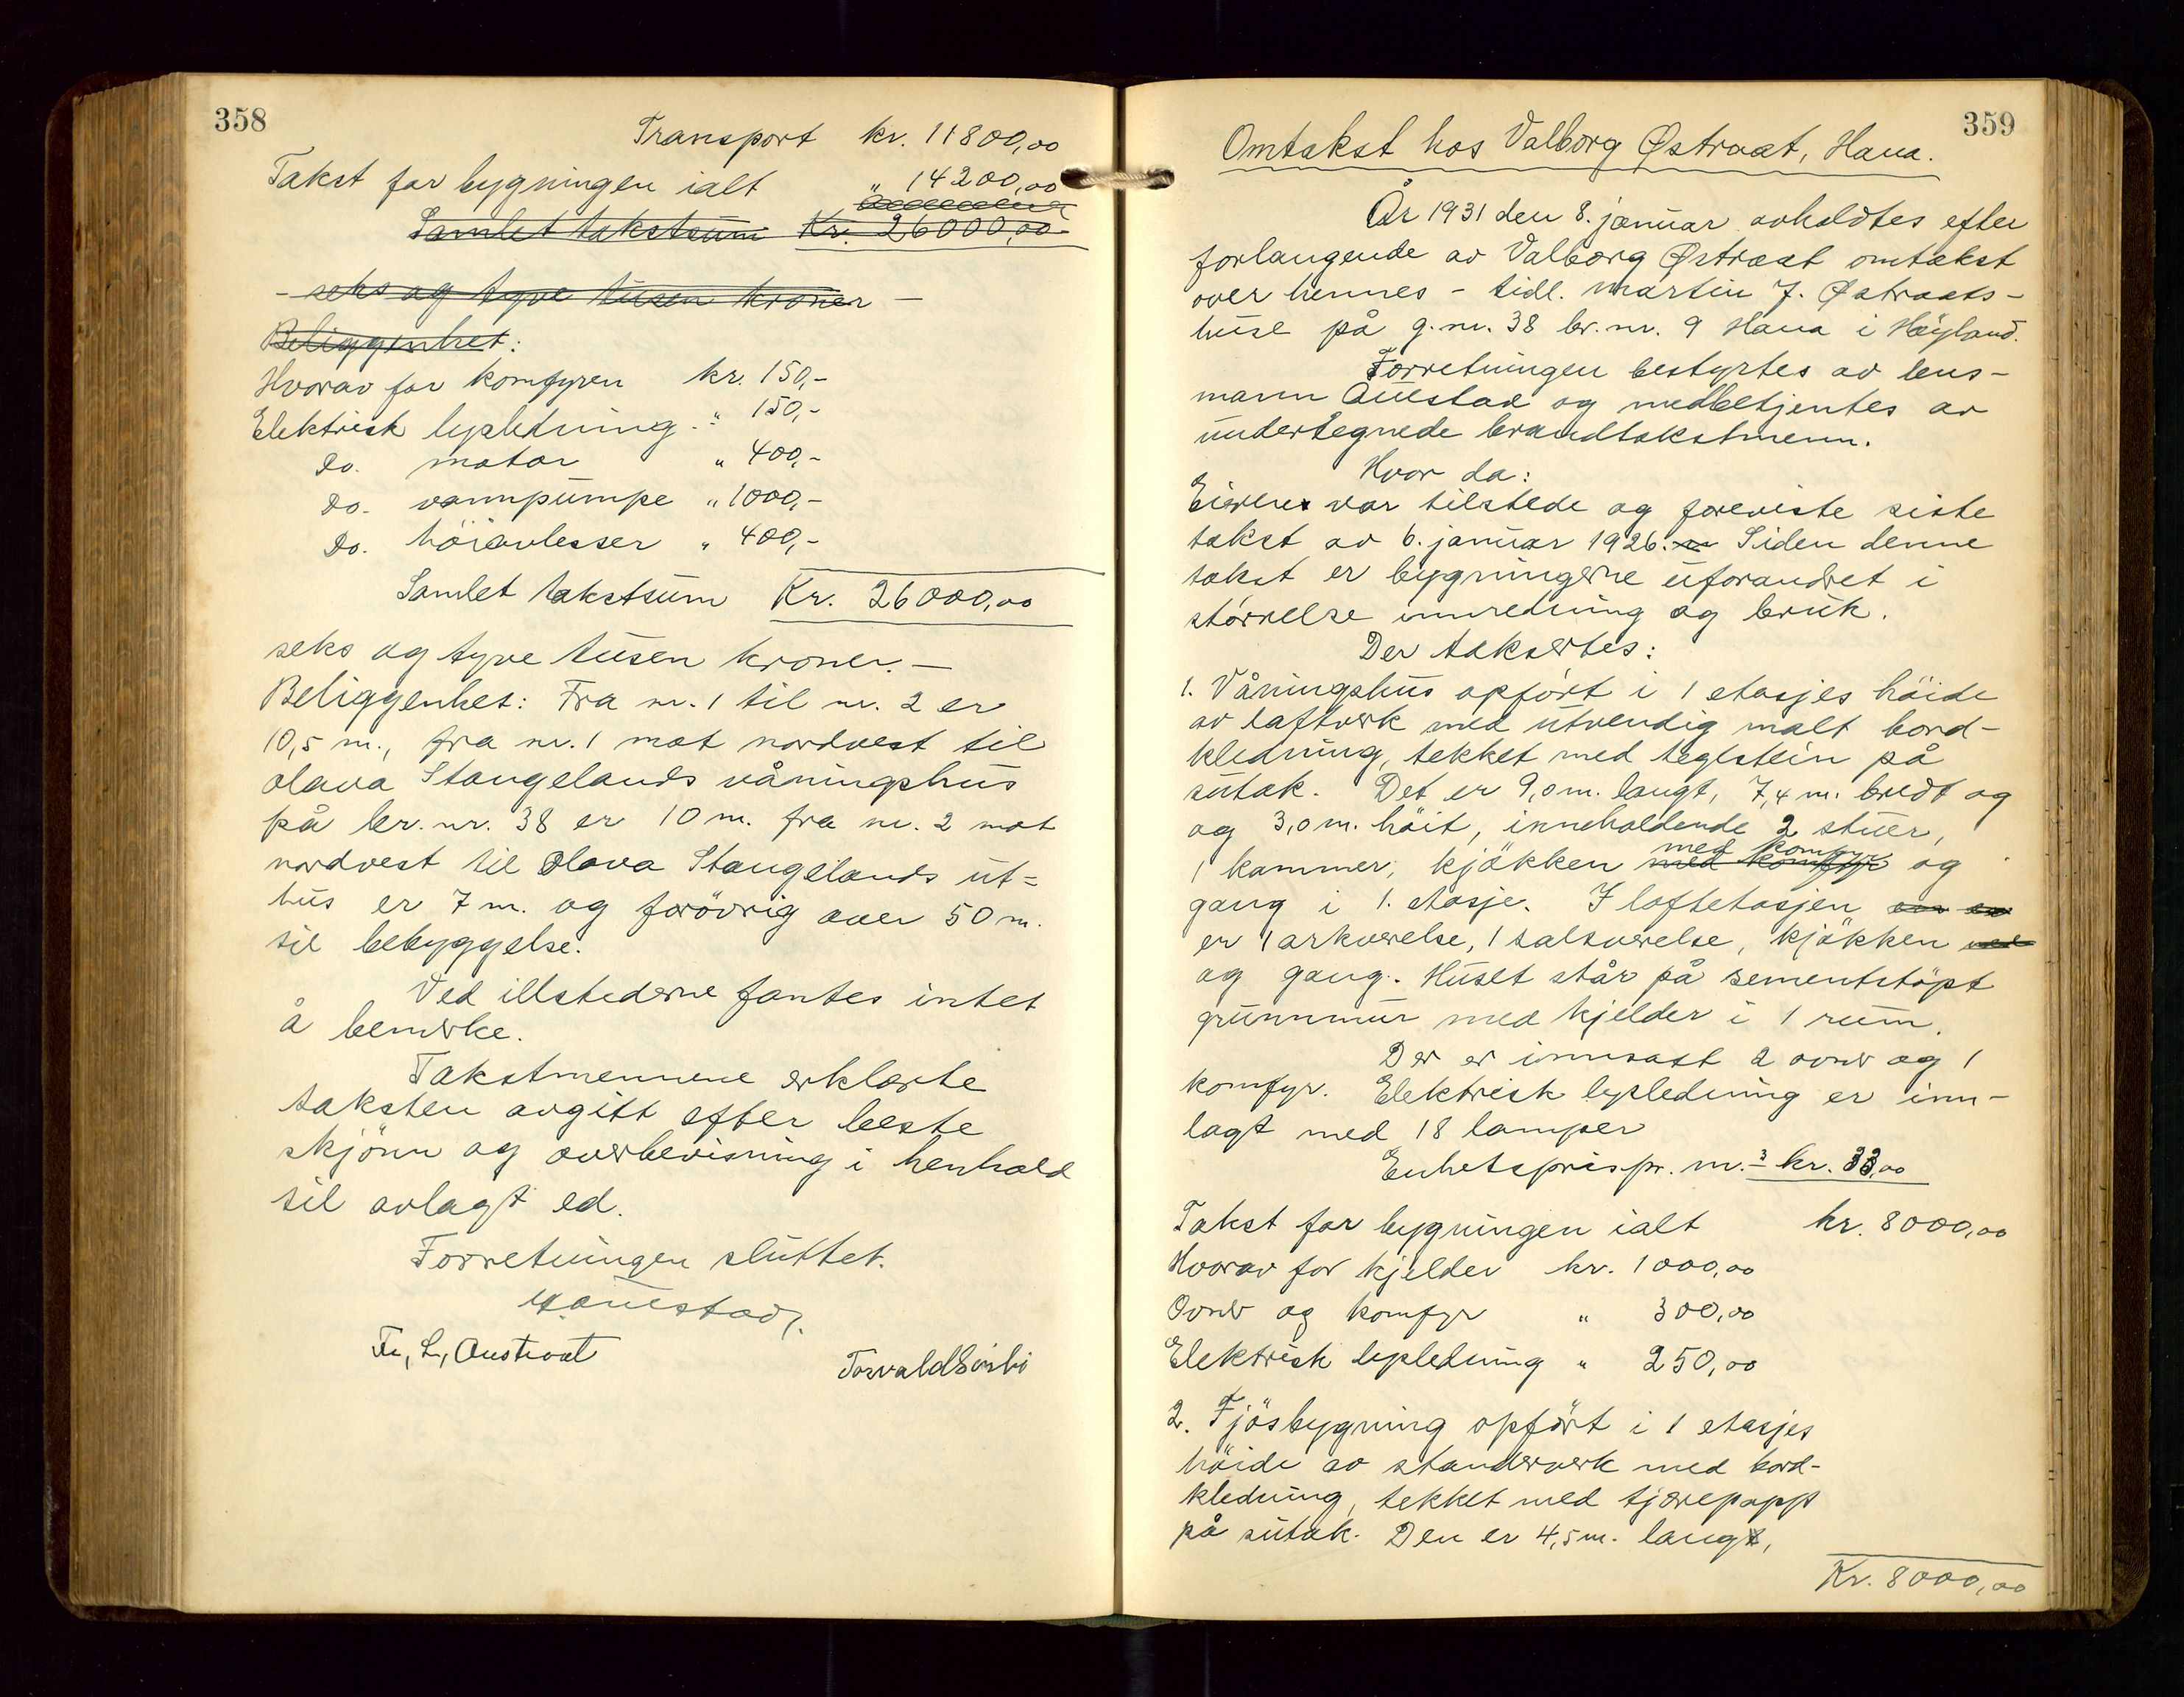 358
Transport kr. 11800,00
Takst for bygningen ialt " 14200,00
Samlet takstsum Kr. 26000,00
- seks og tyve tusen kroner -
Beliggenhet:
Hvorav for komfyren kr. 150,-
Elektrisk lysledning " 150,-
Do. motor " 400,-
Do. vannpumpe " 1000,-
Do. höiavlesser " 400,-
Samlet takstsum Kr. 26000,00
seks og tyve tusen kroner. -
Beliggenhet: Fra nr. 1 til nr. 2 er
10,5 m., fra nr. 1 mot nordvest til
Olava Stangelands våningshus
på br. nr. 38 er 10 m. fra nr. 2 mot
nordvest til Olava Stangelands ut=
hus er 7 m. og forövrig over 50 m.
til bebyggelse.
Ved illstederne fantes intet
å bemerke.
Takstmennene erklærte
taksten avgitt efter beste
skjönn og overbevisning i henhold
til avlagt ed.
Forretningen sluttet.
Fr. L. Austraat
359
Omtakst hos Valborg Østraat, Hana.
År 1931 den 8. januar avholdtes efter
forlangende av Valborg Østraat omtakst
over hennes - tidl. Martin J. Østraats-
huse på g. nr. 38 br. nr. 9 Hana i Høyland.
Forretningen bestyrtes av lens-
mann Auestad og medbetjentes av
undertegnede brandtakstmenn.
Hvor da:
Eieren var tilstede og foreviste siste
takst av 6. januar 1926. Siden denne
takst er bygningerne uforandret i
störrelse innredning og bruk.
Der taksertes:
1. Våningshus opfört i 1 etasjes höide
av laftverk med utvendig malt bord-
kledning, tekket med teglstein på
sutak. Det er 9,0 m. langt, 7,4 m. bredt og
og 3,0 m. höit, inneholdende 2 stuer,
med komfyr
1 kammer, kjökken med komfyr og
gang i 1. etasje. I loftetasjen
er 1 arkverelse, 1 salsverelse, kjökken med
og gang. Huset står på sementstöpt
grunnmur med kjelder i 1 rum.
Der er innsatt 2 ovner og 1
komfyr. Elektrisk lysledning er inn-
lagt med 18 lamper
Enhetspris pr. m.³ kr. 33,00
Takst for bygningen ialt kr. 8000,00
Hvorav for kjelder kr. 1000,00
Ovner og komfyr " 300,00
Elektrisk lysledning " 250,00
2. Fjösbygning opfört i 1 etasjes
höide av standerverk med bord-
kledning, tekket med tjærepapp
på sutak. Den er 4,5 m. langt,
Kr. 8000,00